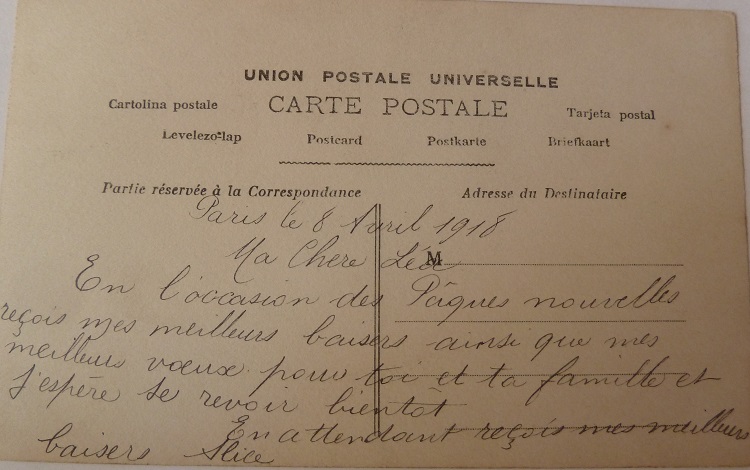 UNION POSTALE UNIVERSELLE
Cartolina postale CARTE POSTALE Tarjeta postal
Levelezo-lap Postcard Postkarte Briefkaart
Partie réservée à la Correspondance Adresse du Destinataire
Paris le 8 Avril 1918
Ma Chere Léa
M
En l'occasion des Pâques nouvelles
reçois mes meilleurs baisers ainsi que mes
meilleurs vœux pour toi et ta famille et
j'espère te revoir bientot
En attendant reçois mes meilleurs
baisers Alice